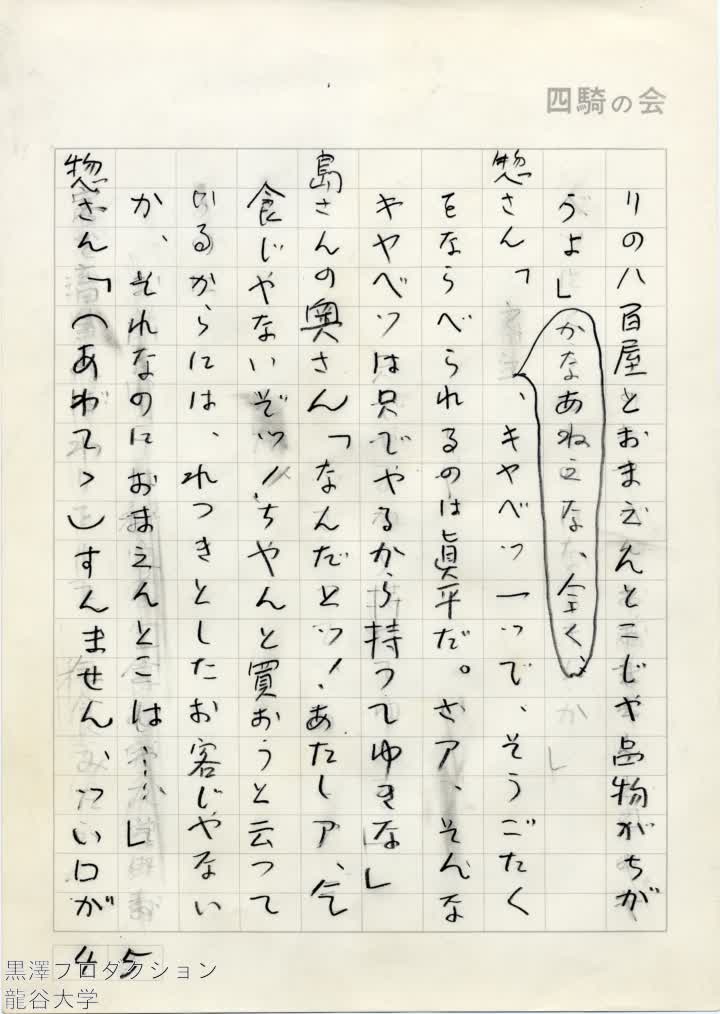 四騎の会
リの八百屋とおまえんとこじや品物がちが
うよ」
かなあねえな、全く、
惣さん「、キヤベツ一つで、そうごたく
をならべられるのは眞平だ。さア、そんな
キヤベツは只でやるから持つてゆきな」
島さんの奥さん「なんだとツ！あたしア、乞
食じやないぞツ！ちやんと買おうと云つて
いるからには、れつきとしたお客じやない
か、それなのにおまえんとこは……」
惣さん「（あわてゝ）すんません、つい口が
45
黒澤プロダクション
龍谷大学